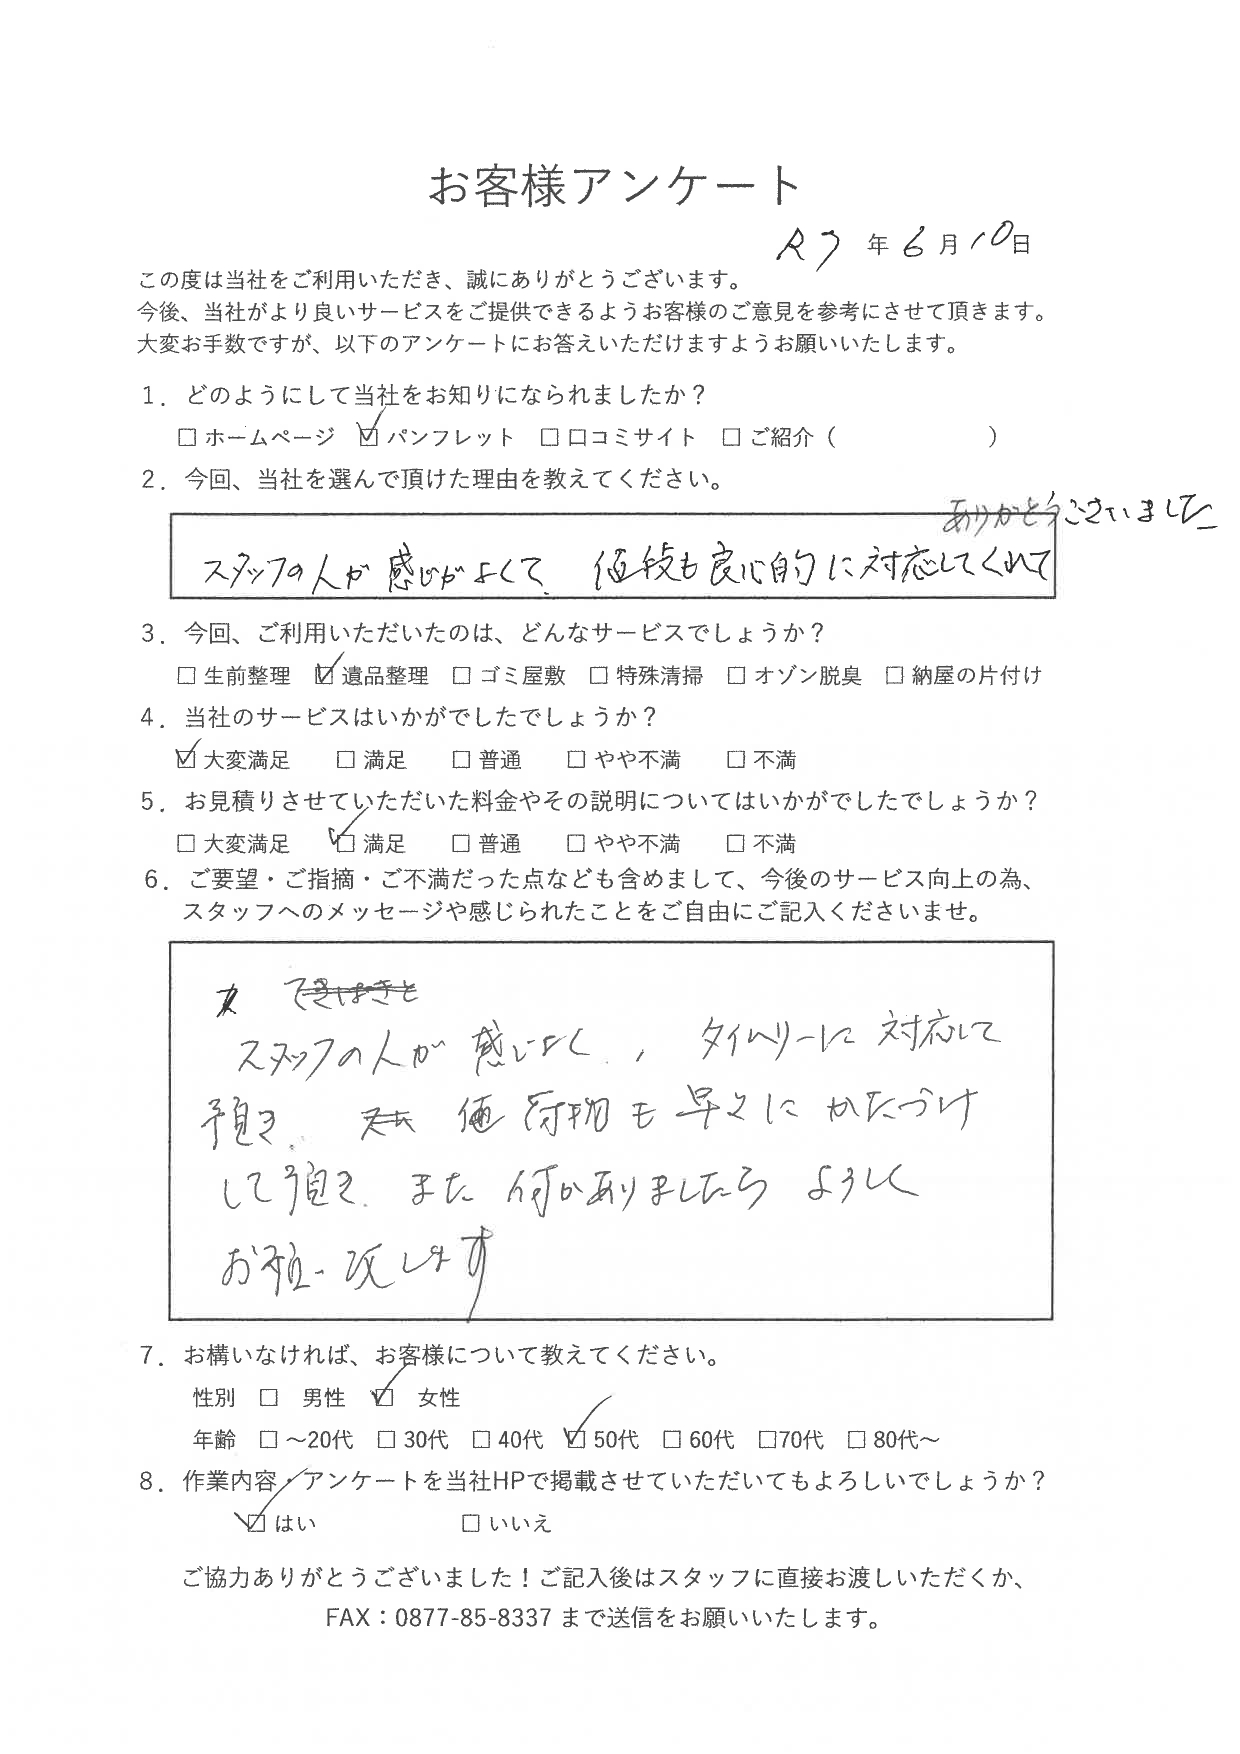 お客様アンケート
R7 年 6 月 10 日
この度は当社をご利用いただき、誠にありがとうございます。
今後、当社がより良いサービスをご提供できるようお客様のご意見を参考にさせて頂きます。
大変お手数ですが、以下のアンケートにお答えいただけますようお願いいたします。
1．どのようにして当社をお知りになられましたか？
□ ホームページ ☑ パンフレット □ 口コミサイト □ ご紹介（ ）
2．今回、当社を選んで頂けた理由を教えてください。
スタッフの人が感じがよくて、値段も良心的に対応してくれて
ありがとうございました
3．今回、ご利用いただいたのは、どんなサービスでしょうか？
□ 生前整理 ☑ 遺品整理 □ ゴミ屋敷 □ 特殊清掃 □ オゾン脱臭 □ 納屋の片付け
4．当社のサービスはいかがでしたでしょうか？
☑ 大変満足 □ 満足 □ 普通 □ やや不満 □ 不満
5．お見積りさせていただいた料金やその説明についてはいかがでしたでしょうか？
□ 大変満足 ☑ 満足 □ 普通 □ やや不満 □ 不満
6．ご要望・ご指摘・ご不満だった点なども含めまして、今後のサービス向上の為、
スタッフへのメッセージや感じられたことをご自由にご記入くださいませ。
てきぱきと
スタッフの人が感じよく、タイムリーに対応して
頂き、荷物も早々にかたづけ
して頂き、また何かありましたらよろしく
お願い致します
7．お構いなければ、お客様について教えてください。
性別 □ 男性 ☑ 女性
年齢 □ ～20代 □ 30代 □ 40代 ☑ 50代 □ 60代 □70代 □ 80代～
8．作業内容・アンケートを当社HPで掲載させていただいてもよろしいでしょうか？
☑ はい □ いいえ
ご協力ありがとうございました！ご記入後はスタッフに直接お渡しいただくか、
FAX：0877-85-8337 まで送信をお願いいたします。